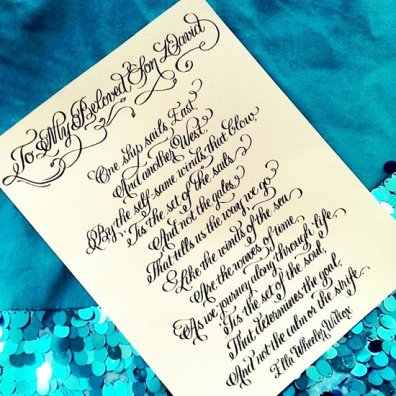 To My Beloved Son David
One ship sails East,
And another West,
By the self-same winds that blow,
'Tis the set of the sails
And not the gales,
That tells us the way we go.
Like the winds of the sea
Are the waves of time,
As we journey along through life,
'Tis the set of the soul,
That determines the goal,
And not the calm or the strife.
Ella Wheeler Wilcox